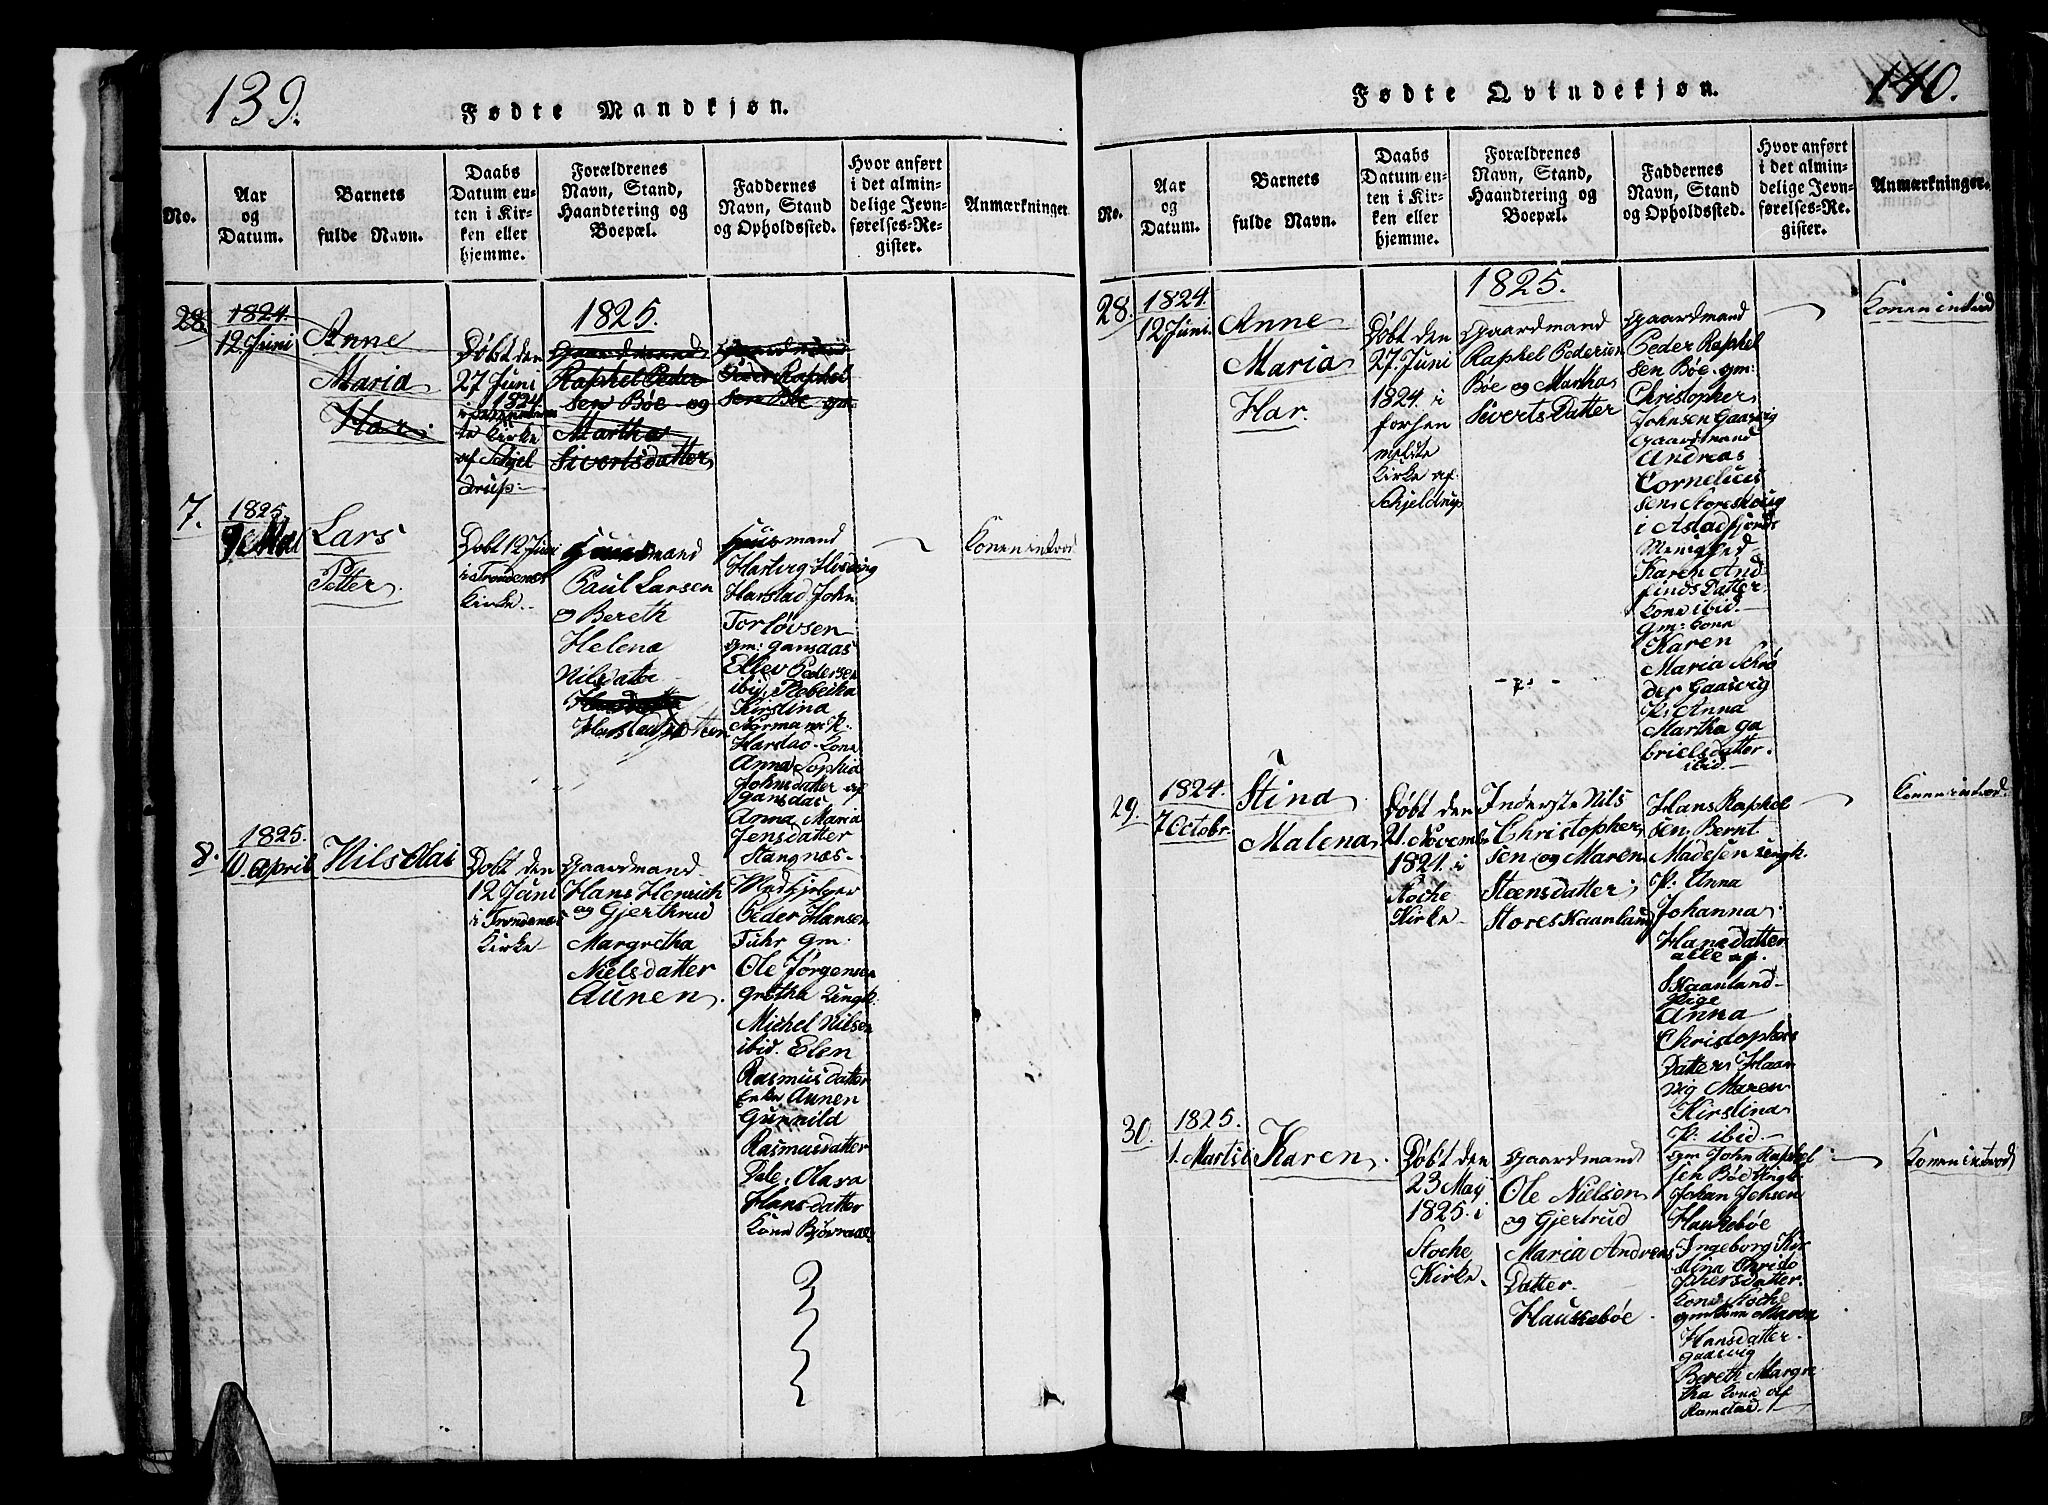 139.
Fødte Mandkjøn.
No.
Aar
og
Datum.
Barnets
fulde Navn.
Daabs
Datum en-
ten i Kir-
ken eller
hjemme.
Forældrenes
Navn, Stand,
Haandtering og
Boepæl.
Faddernes
Navn, Stand
og Opholdssted.
Hvor anført
i det almin-
delige Jevn-
førelses-Re-
gister.
Anmærkninger
1825.
28.
1824.
12 Juni
Anne
Maria
Har.
Døbt den
27 Juni
1824
te Kirke
af Schjel
drup
Gaardmand
Raphel Peder
sen Bøe og
Martha
Sivertsdatter
Gaardmand
Peder Raphel
sen Bøe gm
7.
1825.
9 Mai
Lars
Petter.
Døbt 12 Juni
i Trondenæs
Kirke.
Huusmand
Paul Larsen
og Bereth
Helena
Nilsdatter
Harstadbotten
Huusmand
Hartvig
Harstad. John
Torløvsen
gm: Gansdas
Ellev Pedersen
ibid. Rebeika
Kirstina
Normann P:
Harstad. Kone
Anna Sophia
Johnsdatter af
Gansdas
Anna Maria
Jensdatter
Stangnæs.
Konen introd
8.
1825.
10. April
Nils Olai
Døbt den
12 Juni
i Trondenæs
Kirke
Gaardmand
Hans Henrich
og Gjertrud
Margretha
Nielsdatter
Aunen.
Medhjelper
Peder Hansen
Fuhr gm:
Ole Jørgensen
Grøtha Ungk:
Michel Nilsen
ibid. Elen
Rasmusdatter
Enke Aunen
Gunnild
Rasmusdatter
Dale, Olava
Hansdatter
Kone
140.
Fødte Qvindekjøn.
No.
Aar
og
Datum.
Barnets
fulde Navn.
Daabs
Datum en-
ten i Kir-
ken eller
hjemme.
Forældrenes
Navn, Stand,
Haandtering og
Boepæl.
Faddernes
Navn, Stand
og Opholdssted.
Hvor anført
i det almin-
delige Jevn-
førelses-Re-
gister.
Anmærkninger.
1825.
28.
1824.
12 Juni.
Anne
Maria
Har.
Døbt den
27. Juni
1824. i
forhen
meldte
Kirke af
Schjeldrup
Gaardmand
Raphel Pedersen
Bøe og Martha
Siverts Datter
Gaardmand
Peder Raphel
sen Bøe. gm:
Christopher
Johnsen Gaasvig
Gaardmand
Andreas
Cornelius
sen Storeskoug
i Astafjords
Menighed
Karen And
finds Datter
Kone ibid.
gm: Kone
Karen
Maria Schrø
der Gaasvig
P: Anna
Martha Ga
brielsdatter.
ibid.
Konen introd
29.
1824.
7 Octobr.
Stina
Malena
Døbt den
21. Novemb
1824. i
Stoche
Kirke
Inderste Nils
Christopher
sen og Maren
Steensdatter
Store Skaanland
Hans Raphel
sen, Bernt
Madesen ungk.
P: Anna
Johanna
Hansdatter
alle af
Skaanland
Pige
Anna
Christophers
Datter, Haar
vig Maren
Kirstina
P: ibid.
Konen introd.
30.
1825.
1. Martsi
Karen.
Døbt den
23 Maj
1825. i
Stoche
Kirke.
Gaardmand
Ole Nielsen
og Gjertrud
Maria Andreas
Datter.
Haukebøe.
gm John Raphel
sen Bøe Ungk.
Johan Jensen
Haukebøe
Ingeborg Kir
stina Christo
phersdatter.
Kone Stoche
gm Kone Maren
Hansdatter
Gaasvig
Bereth Margre
tha Kone af
Ramstad.
Konen introd